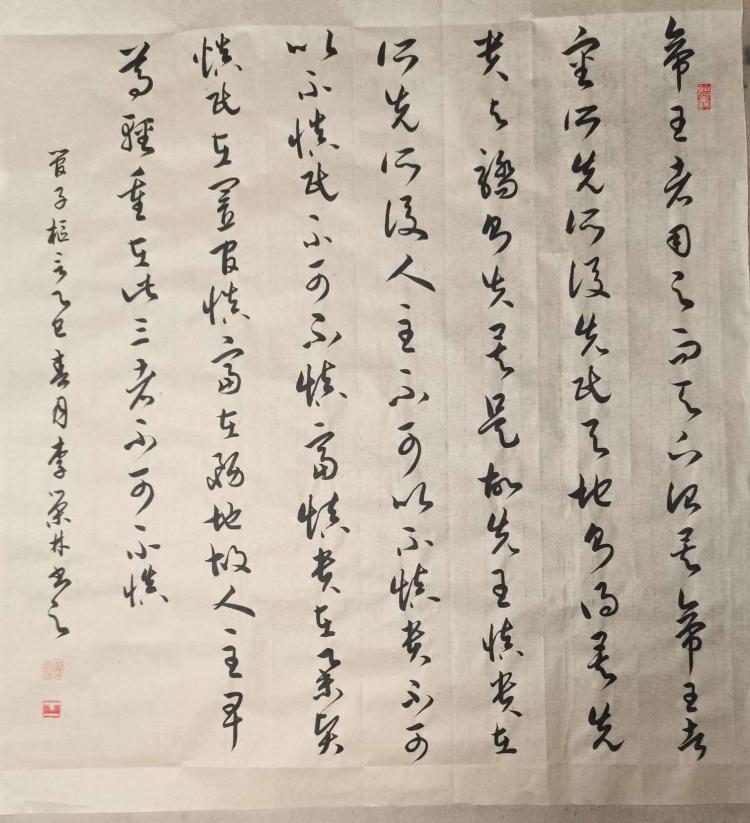 帝王者用之而天下治矣帝王者
審所先所後先民与地則得矣先
貴与驕則失矣是故先王慎貴在
所先所後人主不可以不慎貴不可
以不慎民不可不慎富慎貴在舉賢
慎民在置官慎富在務地故人主卑
尊輕重在此三者不可不慎
管子樞言乙巳春月李榮林書之